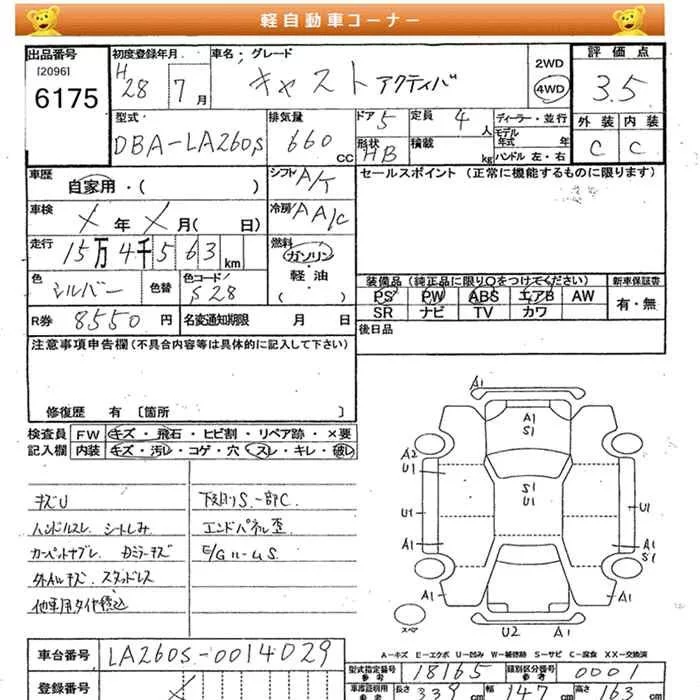 軽自動車コーナー
出品番号 初度登録年月 車名；グレード 2WD 評価点
[2096] H28 7月 キャスト アクティバ 4WD 3.5
6175
型式 排気量 ドア 5 定員 4人 ディーラー・並行 外装 内装
DBA-LA260S 660 CC 形状 HB 積載 kg モデル年式 年 C C
ハンドル 左・右
車歴 自家用・( ) シフト A/T セールスポイント (正常に機能するものに限ります)
車検 X 年 X 月( 日) 冷房 AA/C
走行 15万4千563km 燃料 ガソリン・軽・油 ( )
色 シルバー 色替 色コード S28 装備品 (純正品に限り○をつけてください) 新車保証書
PS PW ABS エアB AW 有・無
SR ナビ TV カワ
R券 8550円 名変通知期限 月 日 後日品
注意事項申告欄(不具合内容等は具体的に記入して下さい)
修復歴 有 [箇所 ]
検査員 FW キズ・飛石・ヒビ割・リペア跡・×要
記入欄 内装 キズ・汚レ・コゲ・穴 スレ・キレ・破レ
キズU 下廻りS.一部C.
ハンドルスレ. シートしみ エンドパネル歪
カーペットヤブレ. Dミラーキズ
外ALキズ. スタッドレス
他車用タイヤ積込
A1
A1
S1
A2
U1
S1
U1
U1 U1
A1 A1
S1
A1 A1
スペア
U2 A1
A-キズ E-エクボ U-凹み W-補修跡 S-サビ C-腐食 XX-交換済
車台番号 LA260S-0014029
型式指定番号 18165 類別区分番号 0001
登録番号 車庫証明用 長さ 339cm 幅 147cm 高さ 163cm